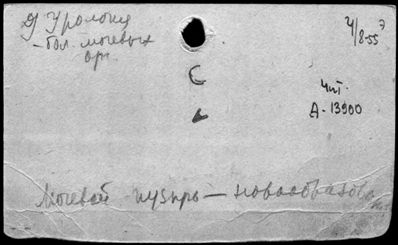 Урология
- бол. мочевых
орг.
4/8-55 г
чит.
А-13900
Мочевой пузырь — новообразова